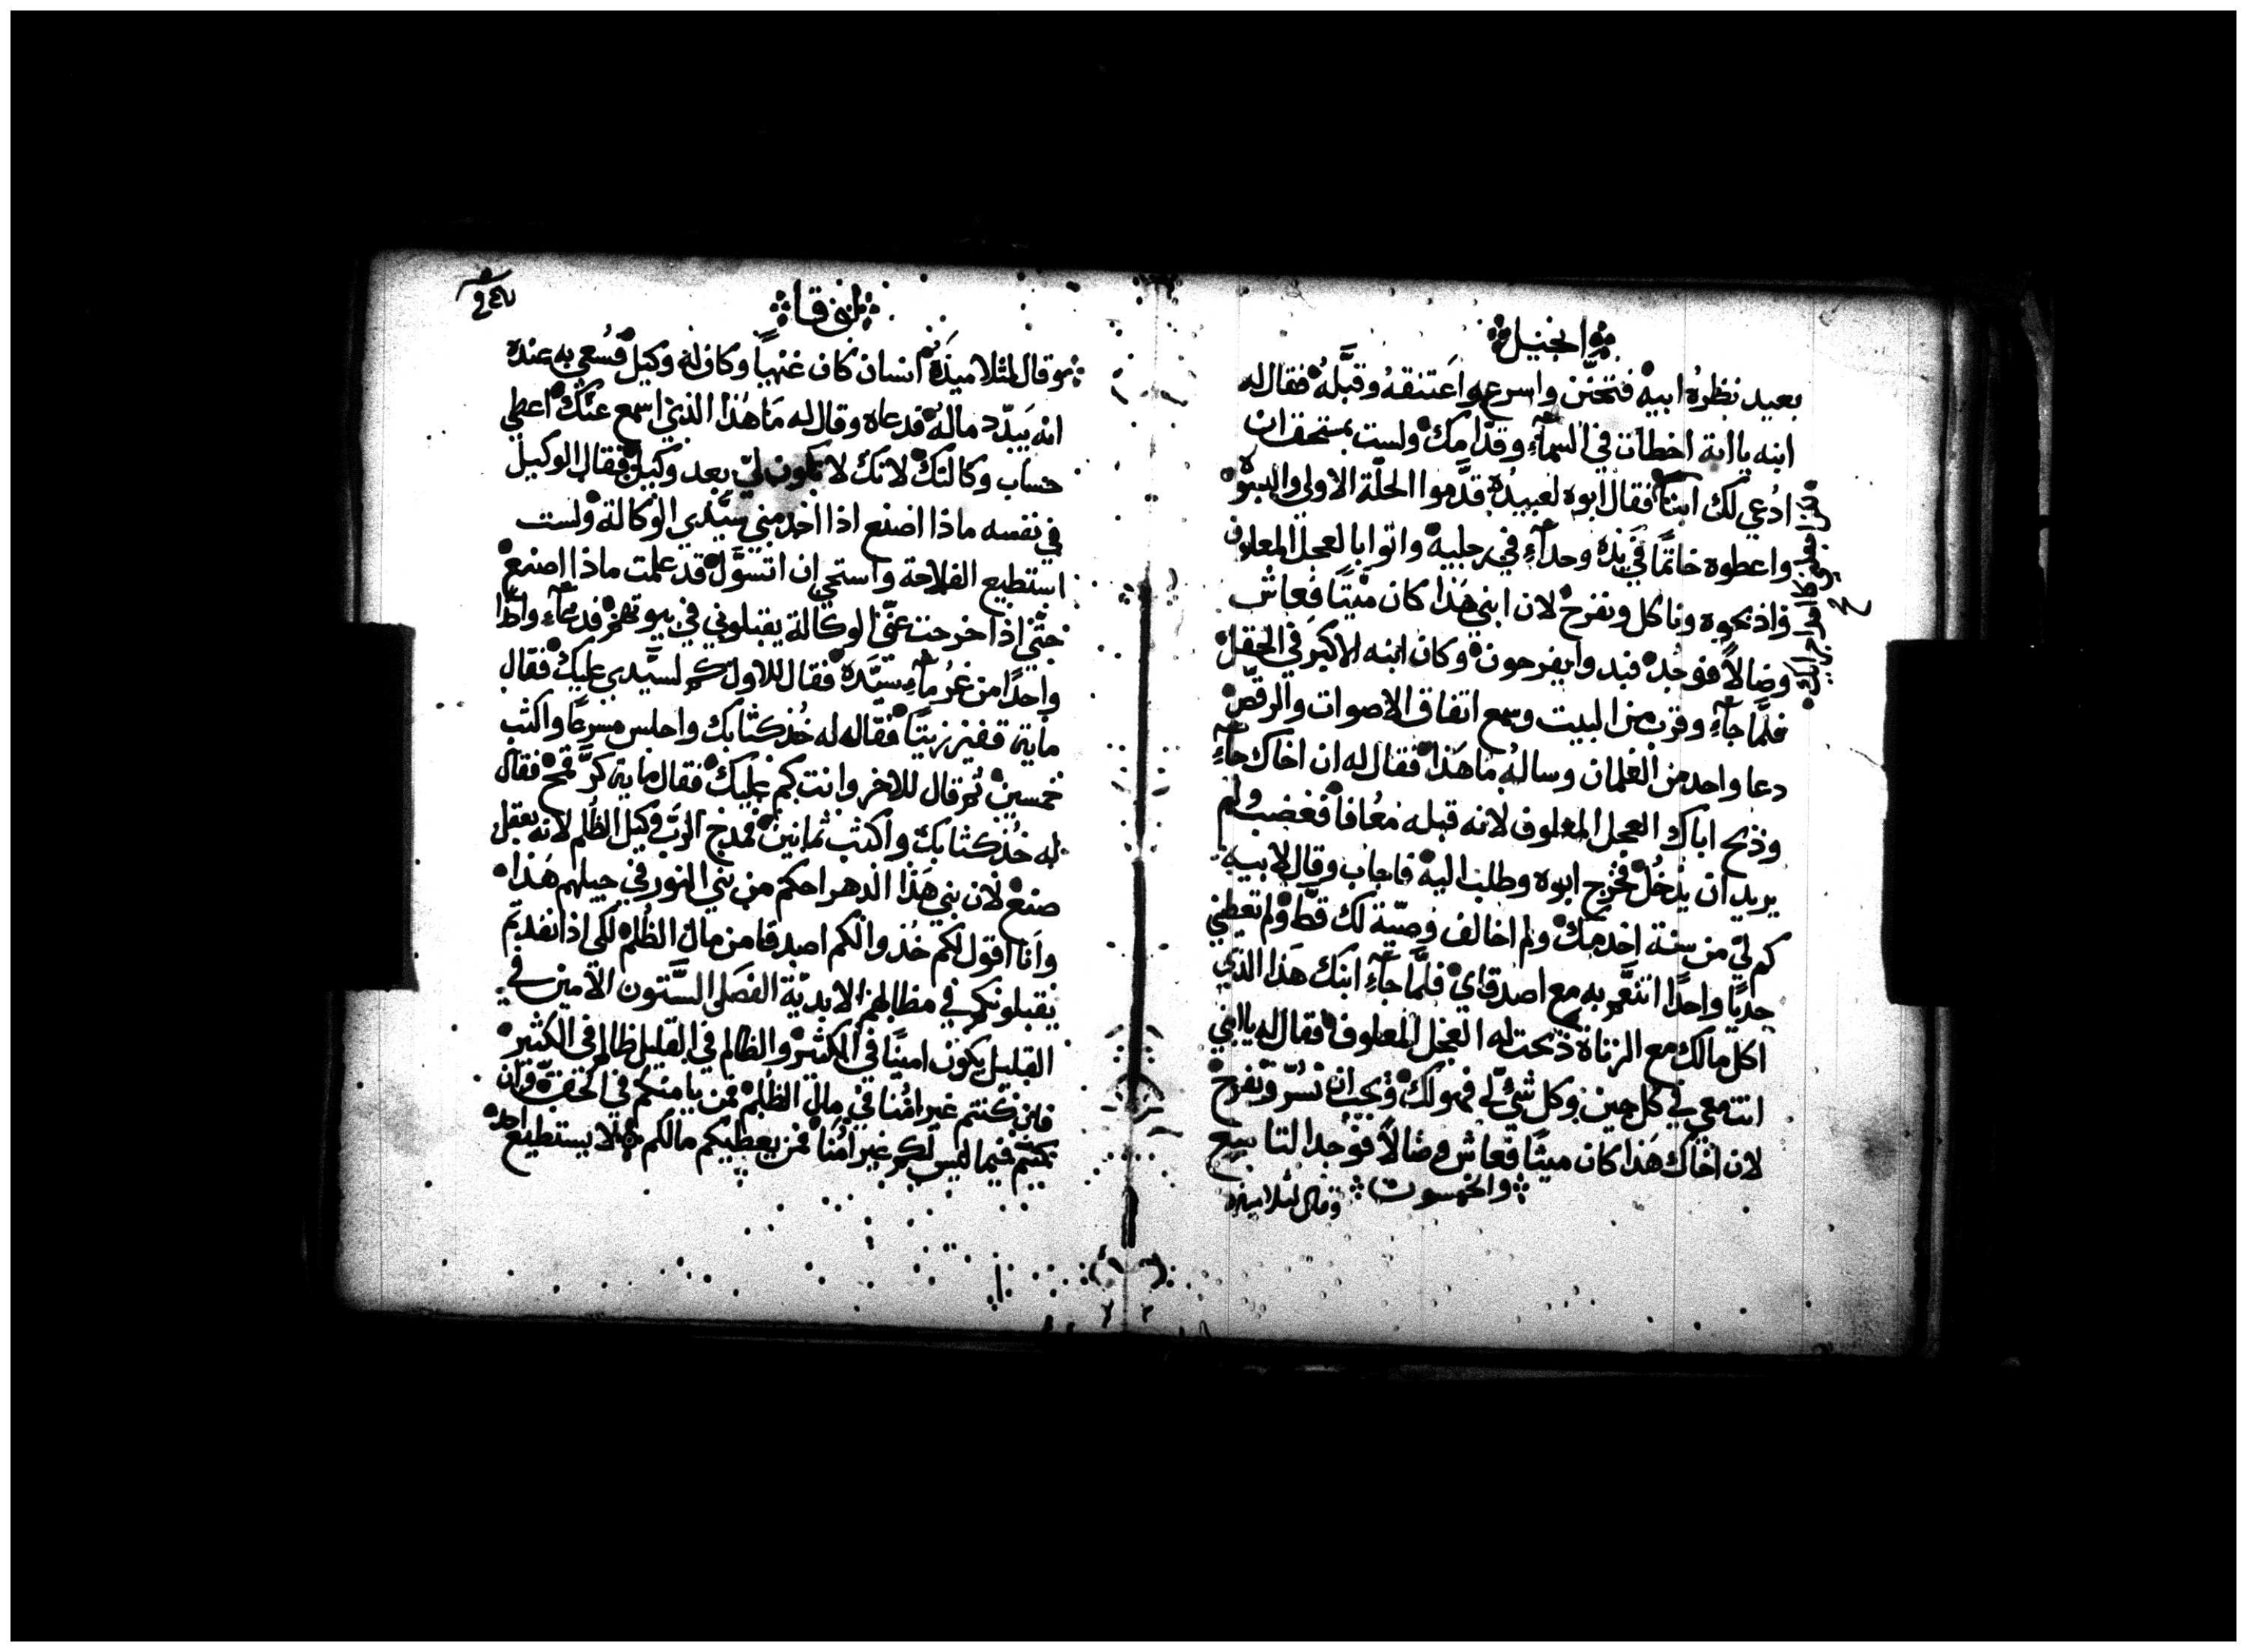 انجيل
بعيد نظره ابيه فتحنّن واسرع واعتنقه وقبّله فقال له
ابنه ياابة اخطات في السمآء وقدامك ولست بمستحق ان
ادعي لك ابنًا فقال ابوه لعبيده قدّموا الحلّة الاولي والبسوه
واعطوه خاتمًا في يده وحدآء في رجليه واتوا بالعجل المعلوف
واذبحوه وناكل ونفرح لان ابني هذا كان ميتًا فعاش
وضالاً فوجد فبدوا يفرحون وكان ابنه الاكبر في الحقل
فلمّا جآء وقرب من البيت وسمع اتفاق الاصوات والرقص
دعا واحد من الغلمان وساله ما هذا فقال له ان اخاك جآء
وذبح اباك العجل المعلوف لانه قبله معافا فغضب ولم
يريد ان يدخل فخرج ابوه وطلب اليه فاجاب وقال لابيه
كم لي من سنة اخدمك ولم اخالف وصيّة لك قطّ ولم تعطيني
جديًا واحدًا اتنعّم به مع اصدقاي فلمّا جآء ابنك هذا الذي
اكل مالك مع الزناة ذبحت له العجل المعلوف فقال له ياابني
انت معي في كل حين وكل شيء لي فهو لك ويجب ان نسرّ ونفرح
لان اخاك هذا كان ميتًا فعاش وضالاً فوجد التاسع
والخمسون
وقال لتلاميذه
لوقا
وقال لتلاميذه انسان كان غنيًا وكان له وكيل فسعي به عنده
انه يبدّد ماله فدعاه وقال له ما هذا الذي اسمع عنك اعطي
حساب وكالتك لانك لا تكون لي بعد وكيل فقال الوكيل
في نفسه ماذا اصنع اذا اخد مني سيّدي الوكالة ولست
استطيع الفلاحة واستحي ان اتسوّل قد علمت ماذا اصنع
حتي اذا خرجت عنّي الوكالة يقبلوني في بيوتهم فدعآء
واحدًا من غرمآء سيّده فقال للاول كم لسيّدي عليك فقال
ماية قفيز زيتًا فقال له خذ كتابك واجلس مسرعًا واكتب
خمسين ثم قال للاخر وانت كم عليك فقال ماية كرّ قمح فقال
له خذ كتابك واكتب ثمانين فمدح الربّ وكيل الظلم لانه بعقل
صنع لان بني هذا الدهر احكم من بني النور في جيلهم هذا
وانا اقول لكم خذوا لكم اصدقا من مال الظلم لكي اذا نفديتم
يقبلونكم في مظالهم الابديّة الفصل الستون الامين في
القليل يكون امينًا في الكثير والظالم في القليل ظالم في الكثير
فان كنتم غير امنا في مال الظلم فمن يامنكم في الحقّ وان
كنتم فيما ليس لكم غير امنا فمن يعطيكم مالكم لا يستطيع احد